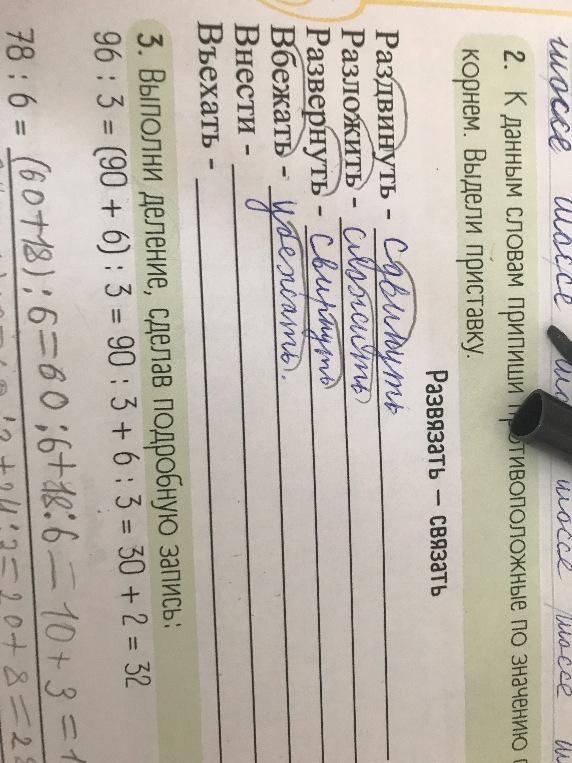 шоссе шоссе шоссе шоссе
2. К данным словам припиши противоположные по значению с
корнем. Выдели приставку.
Развязать – связать
Раздвинуть - сдвинуть
Разложить - сложить
Развернуть - свирнуть
Вбежать - убежать.
Внести -
Въехать -
3. Выполни деление, сделав подробную запись:
96 : 3 = (90 + 6) : 3 = 90 : 3 + 6 : 3 = 30 + 2 = 32
78 : 6 = (60+18) : 6 = 60 : 6 + 18 : 6 = 10 + 3 = 1
: 3 + 24 : 3 = 20 + 8 = 28